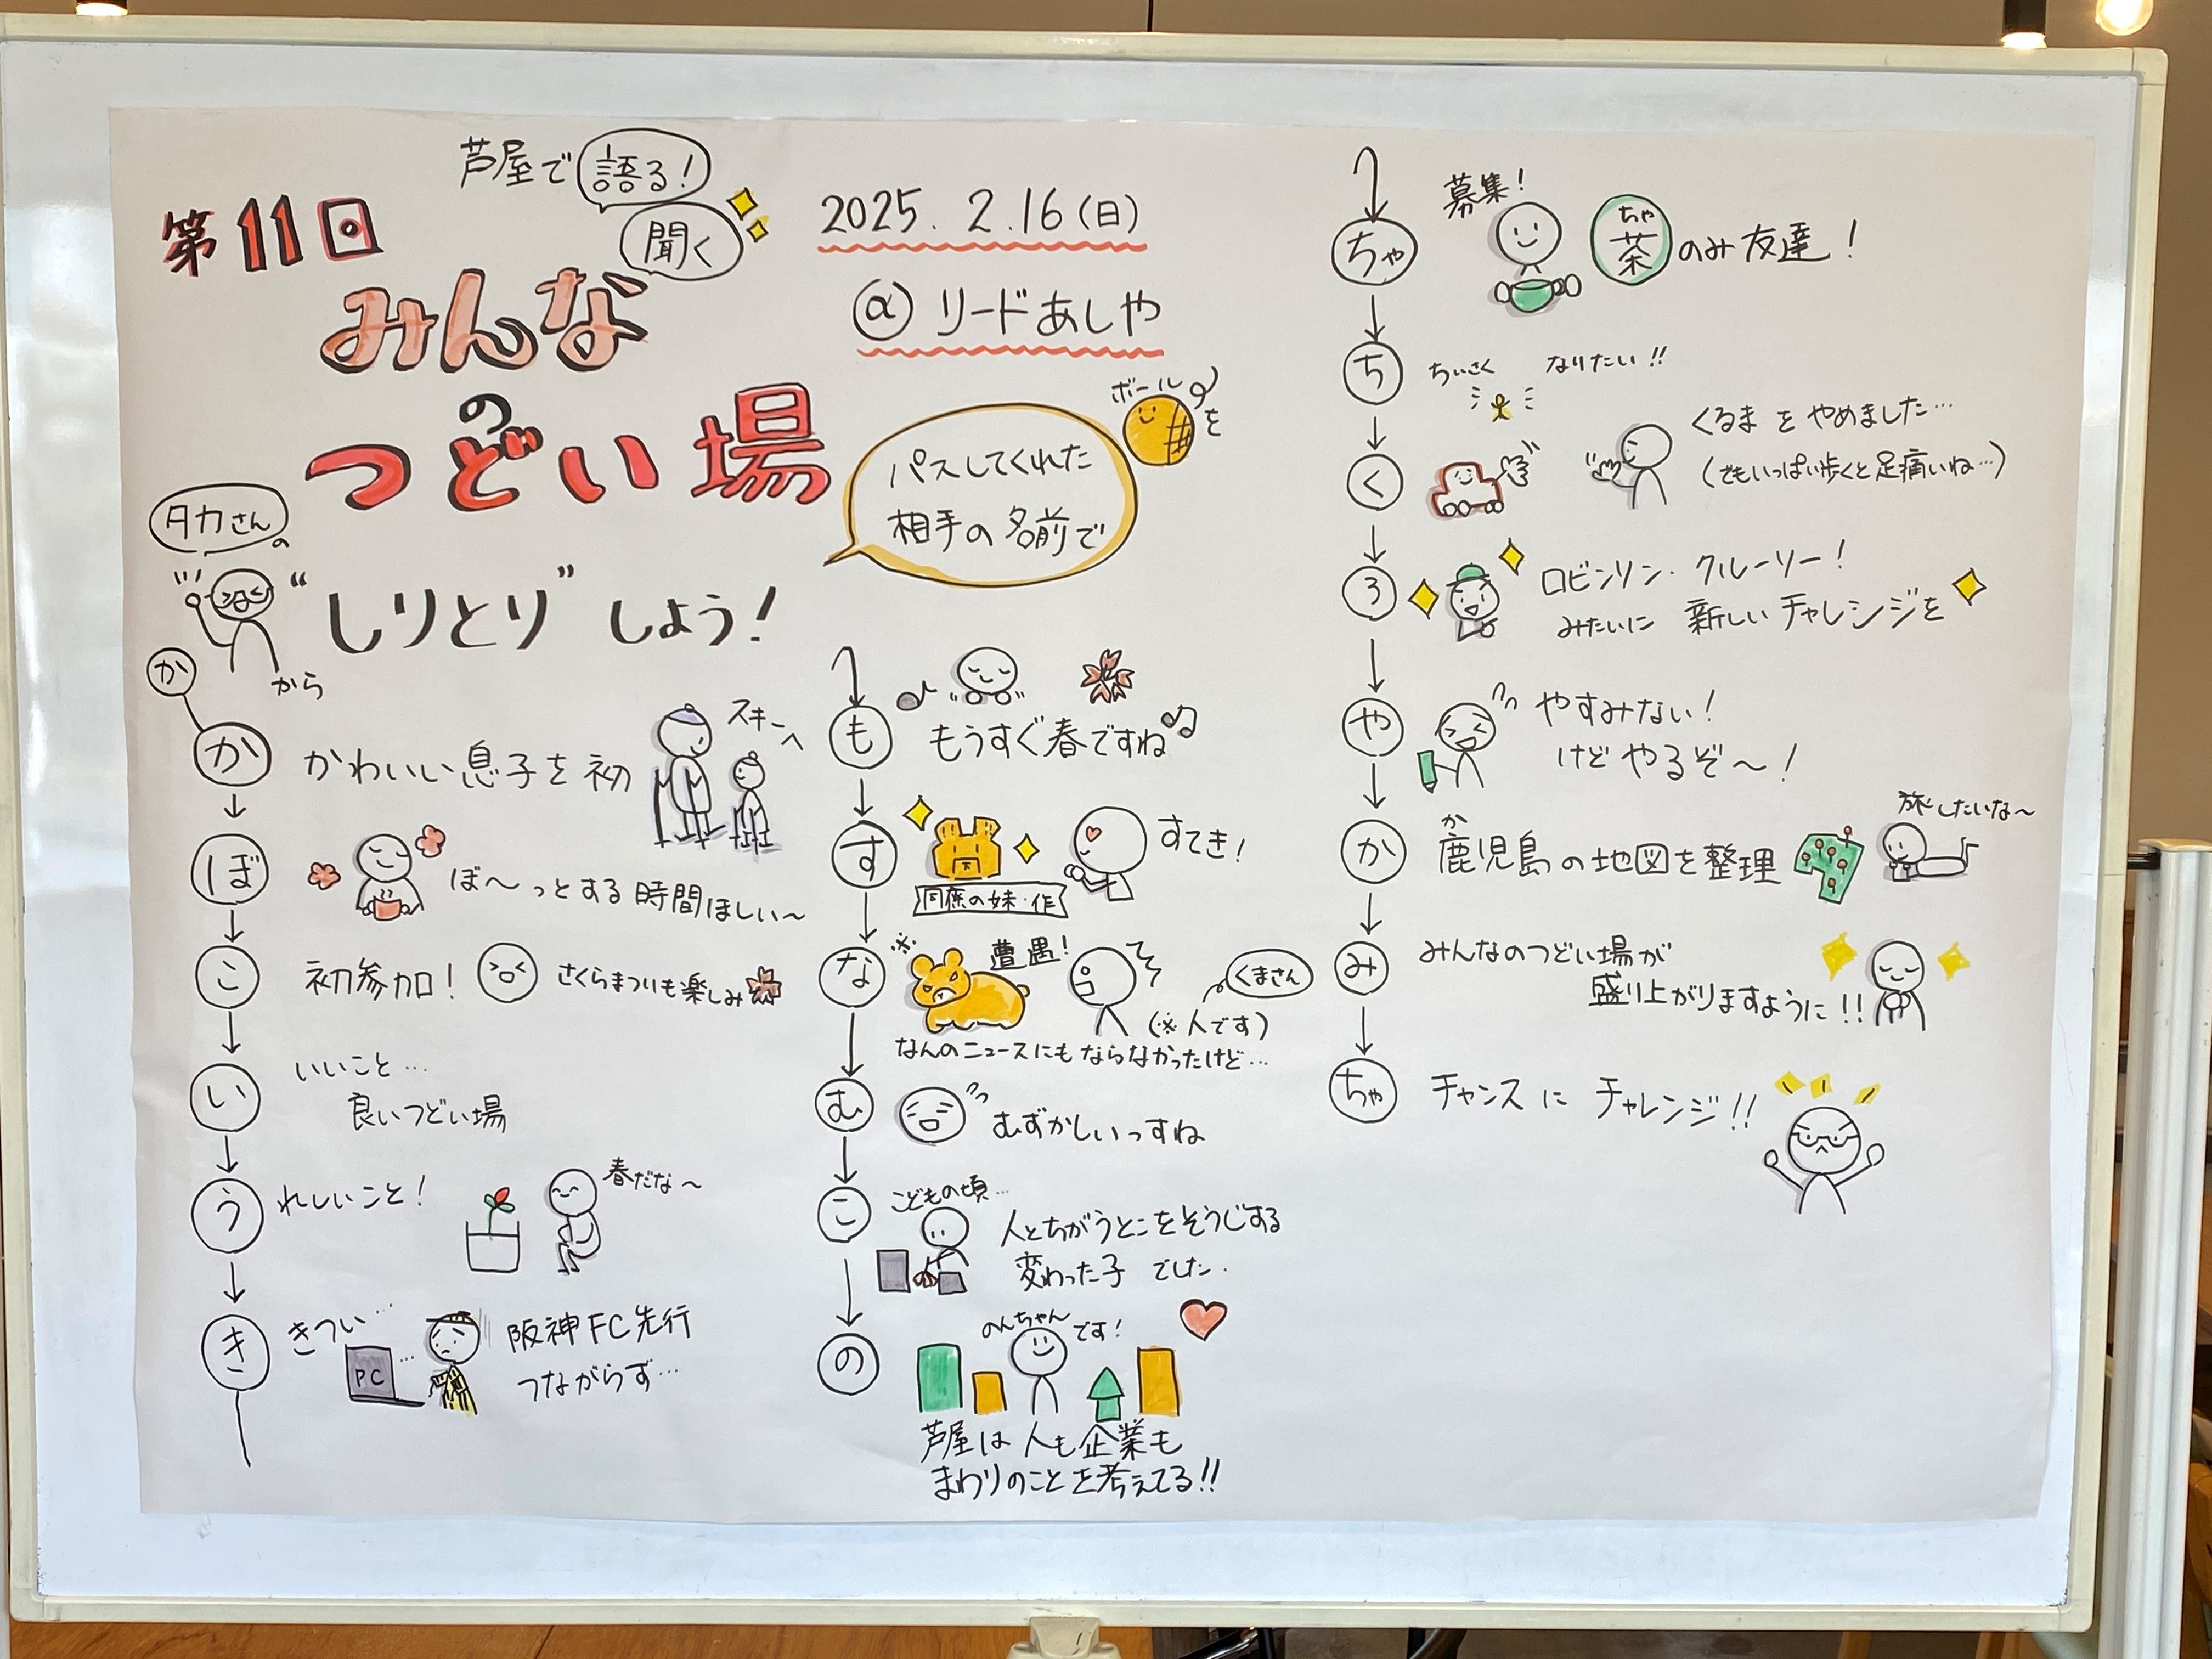 芦屋で語る!
聞く
第11回
みんな
の
つどい場
2025.2.16(日)
@リードあしや
タカさん
の
から
"しりとり"しよう!
パスしてくれた
相手の名前で
ボール
を
か
か
かわいい息子を初
スキーへ
ぼ
ぼ〜っとする時間ほしい〜
こ
初参加!
さくらまつりも楽しみ
い
いいこと…
良いつどい場
う
れしいこと!
春だな〜
き
きつい…
PC
阪神FC先行
つながらず…
も
もうすぐ春ですね
す
同僚の妹・作
すてき!
な
※
遭遇!
くまさん
(※人です)
なんのニュースにもならなかったけど…
む
むずかしいっすね
こ
こどもの頃…
人とちがうとこをそうじする
変わった子でした.
の
のんちゃんです!
芦屋は人も企業も
まわりのことを考えてる!!
ちゃ
募集!
ちゃ
茶のみ友達!
ち
ちいさくなりたい!!
く
くるまをやめました…
(でもいっぱい歩くと足痛いね…)
ろ
ロビンソン・クルーソー!
みたいに新しいチャレンジを
や
やすみない!
けどやるぞ〜!
か
か
鹿児島の地図を整理
旅したいな〜
み
みんなのつどい場が
盛り上がりますように!!
ちゃ
チャンスにチャレンジ!!